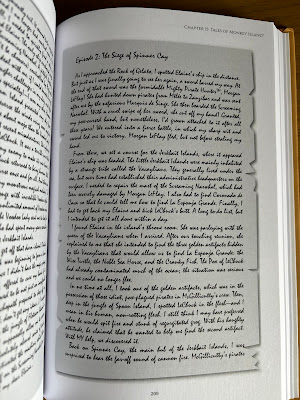 CHAPTER 11: TALES OF MONKEY ISLAND
Episode 2: The Siege of Spinner Cay
As I approached the Rock of Gelato, I spotted Elaine's ship in the distance.
But just as I was finally going to see her again, a sword barred my way. At
the end of that sword was the formidable Mighty Pirate Hunter™, Morgan
LeFlay. She had hunted down pirates from Melee to Zanzibar and was sent
after me by the nefarious Marquis de Singe. She then boarded the Screaming
Narwhal. With a cruel swipe of her sword, she cut off my hand! Granted,
it was my cursed hand, but nonetheless, I'd grown attached to it after all
these years! We entered into a fierce battle, in which my sharp wit and
sword led me to victory. Morgan LeFlay fled, but not before stealing my
hand.
From there, we set a course for the Jerkbait Islands, where it appeared
Elaine's ship was headed. The little Jerkbait Islands were mainly inhabited
by a strange tribe called the Vacaylians. They generally lived under the
sea, but over time had established their administrative headquarters on the
surface. I needed to repair the mast of the Screaming Narwhal, which had
been merely damaged by Morgan LeFlay. I also had to find Coronado de
Cava so that he could tell me how to find La Esponja Grande. Finally, I
had to get back my Elaine and kick LeChuck's butt. A long to-do list, but
I intended to get it all done within a day.
I found Elaine in the island's throne room. She was parleying with the
queen of the Vacaylians when I arrived. After our touching reunion, she
explained to me that she intended to find the three golden artifacts hidden
by the Vacaylians that would allow us to find La Esponja Grande: the
Wise Turtle, the Noble Sea Horse, and the Cranky Fish. The Pox of LeChuck
had already contaminated much of the ocean; the situation was serious
and we could no longer flee.
In no time at all, I took one of the golden artifacts, which was in the
possession of those idiot, pox-plagued pirates in McGillicutty's crew. Then
deep in the jungle of Spoon Island, I spotted LeChuck in the flesh—and I
mean in his human, non-rotting flesh. I still think I may have preferred
when he would spit fire and stank of regurgitated grog. With his haughty
attitude, he claimed that he wanted to help me find the second artifact.
With MY help, we discovered it.
Back on Spinner Cay, the main hub of the Jerkbait Islands, I was
surprised to hear the far-off sound of cannon fire. McGillicutty's pirates
209